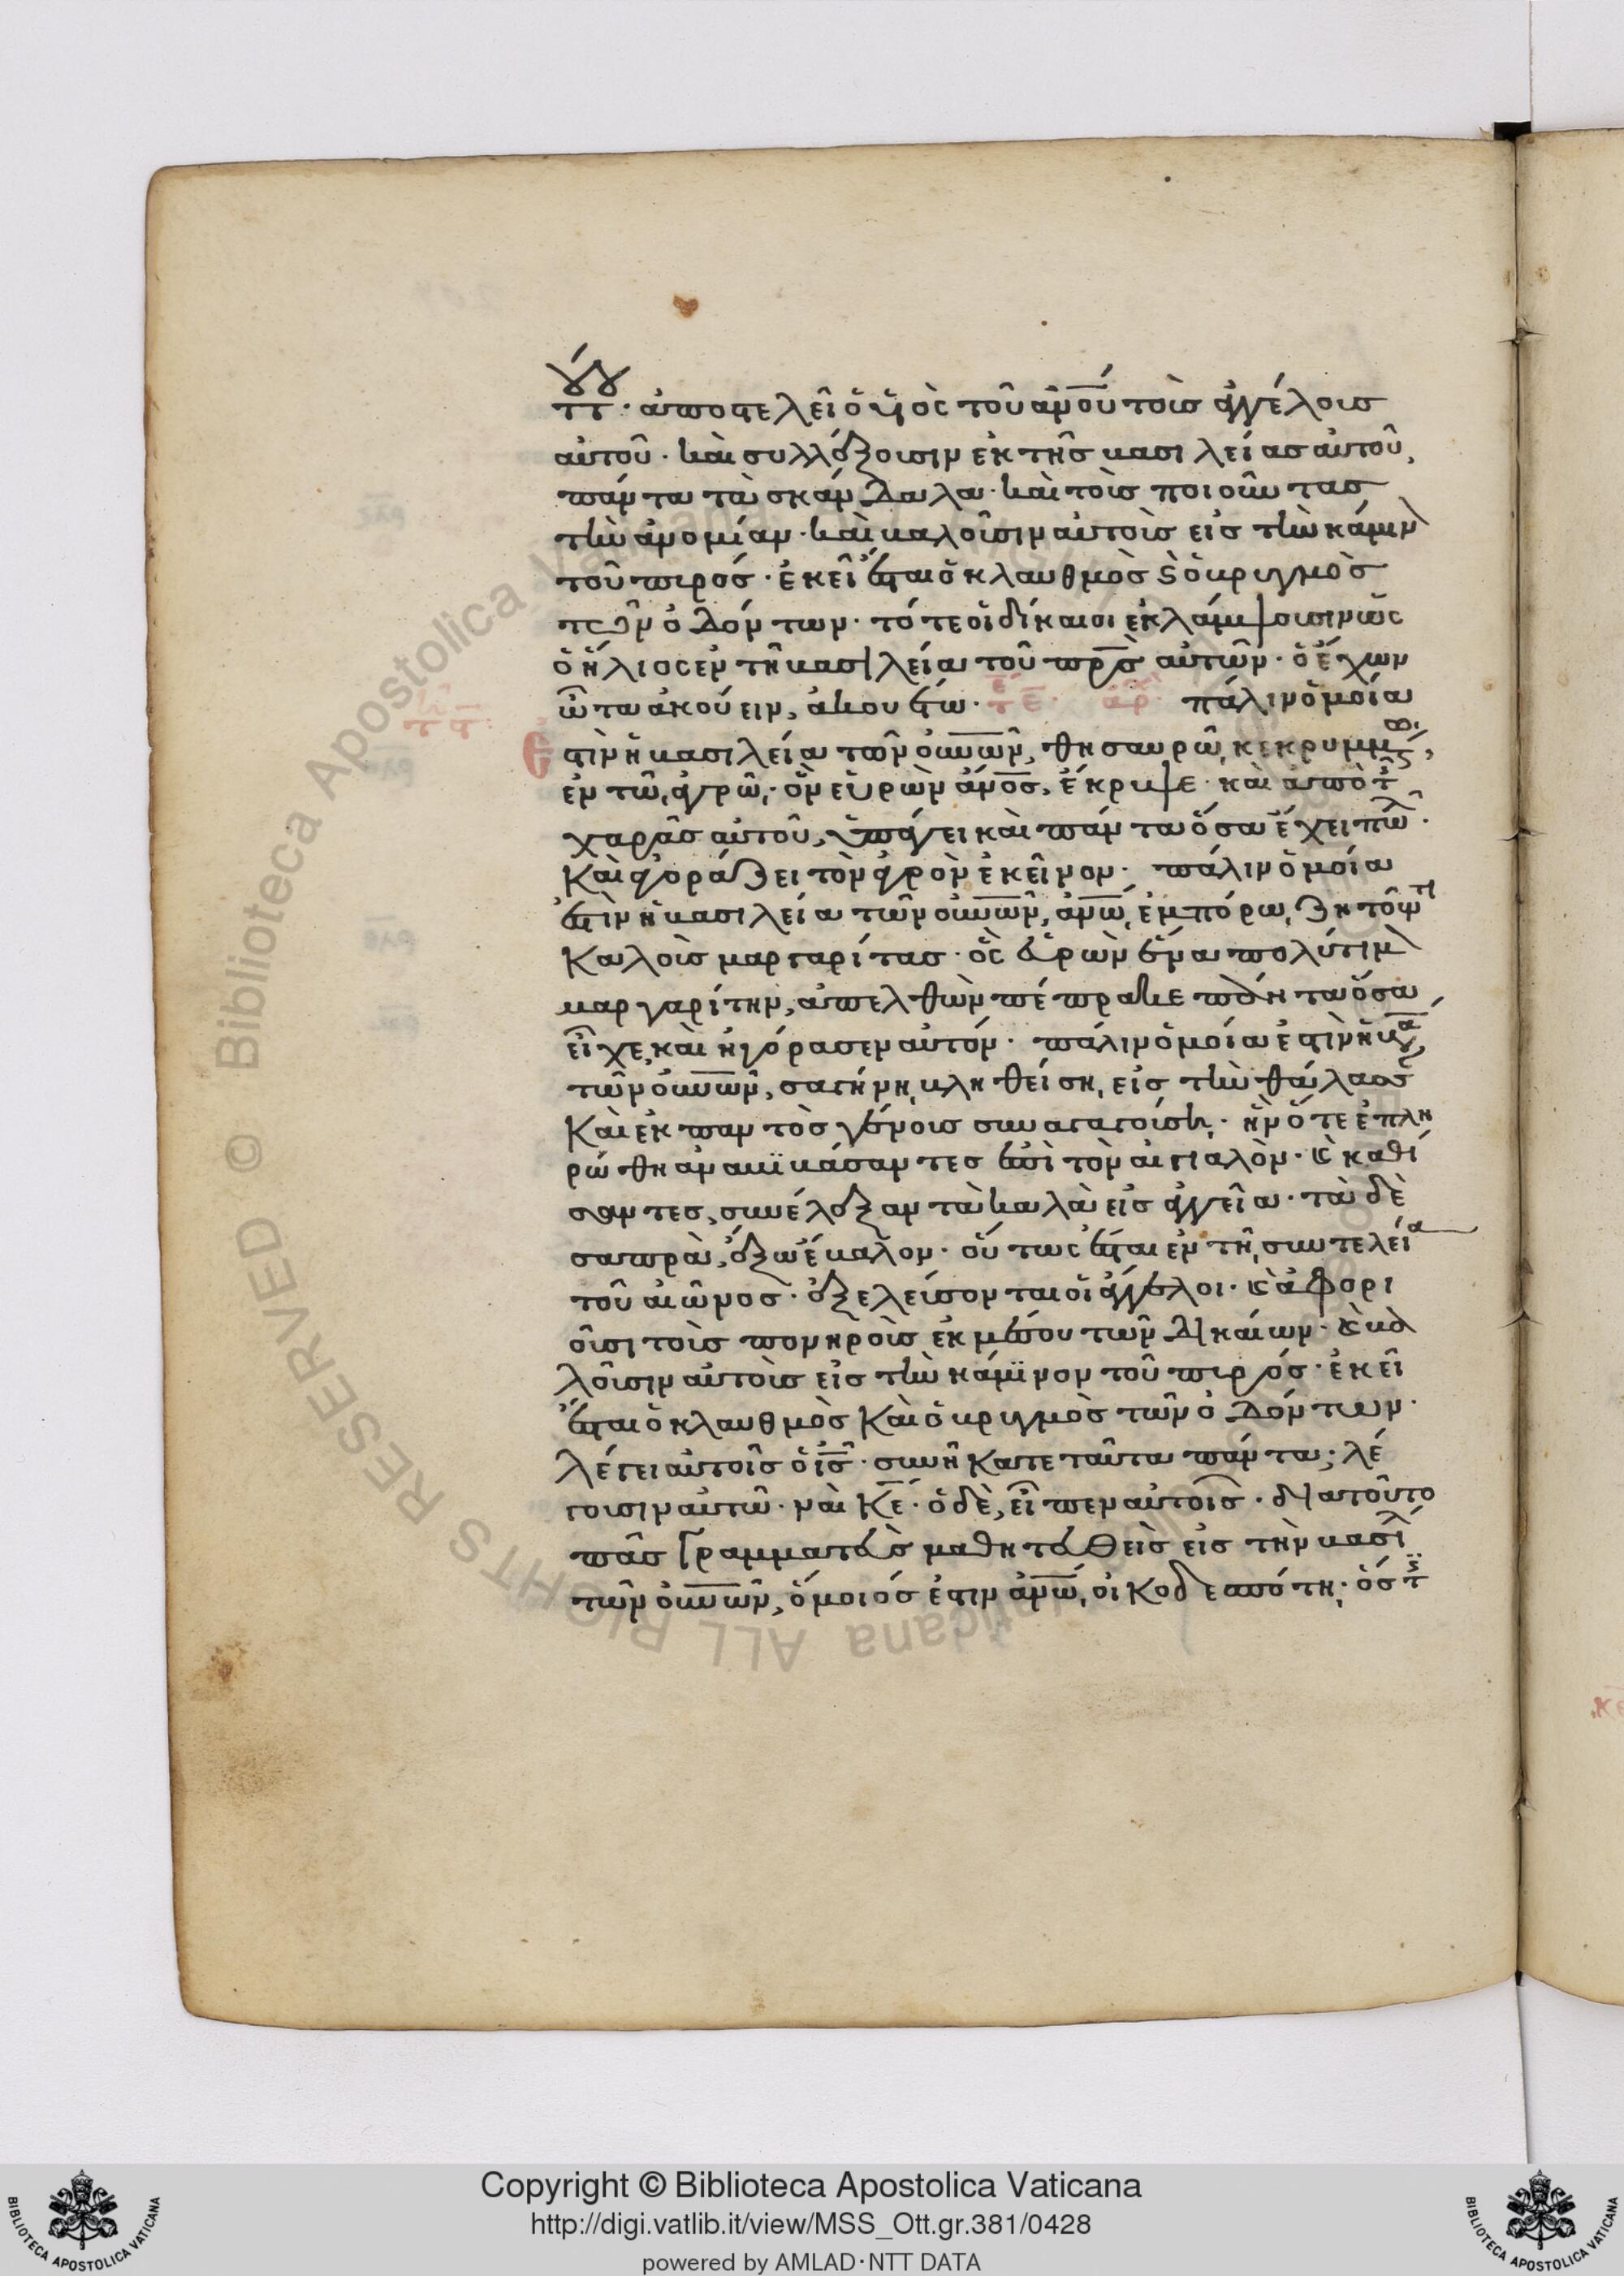 του· ἀποστελεῖ ὁ υἱὸς τοῦ ἀν̅ου τοὺς ἀγγέλους
αὐτοῦ· καὶ συλλέξουσιν ἐκ τῆς βασιλείας αὐτοῦ,
πάντα τὰ σκάνδαλα· καὶ τοὺς ποιοῦντας
τὴν ἀνομίαν· καὶ βαλοῦσιν αὐτοὺς εἰς τὴν κάμιν
τοῦ πυρός· ἐκεῖ ἔσται ὁ κλαυθμὸς ϗ ὁ βρυγμὸς
τῶν ὀδόντων· τότε οἱ δίκαιοι ἐκλάμψουσιν ὡς
ὁ ἥλιος ἐν τῆ βασιλεία τοῦ πρ̅ς αὐτῶν· ὁ ἔχων
ὦτα ἀκούειν, ἀκουέτω· τε̅ ἀρ πάλιν ὁμοία
ἐστὶν ἡ βασιλεία τῶν οὐν̅ων, θησαυρῶ κεκρυμμ
ἐν τῶ ἀγρῶ· ὃν εὑρὼν ἀν̅ος, ἔκρυψε· καὶ ἀπὸ τ
χαρᾶς αὐτοῦ, ὑπάγει καὶ πάντα ὅσα ἔχει πωλ·
καὶ ἀγοράζει τὸν ἀγρὸν ἐκεῖνον· πάλιν ὁμοία
ἐστὶν ἡ βασιλεία τῶν οὐν̅ων, ἀν̅ω ἐμπόρω ζητοῦντι
καλοὺς μαργαρίτας· ὃς εὑρὼν ἕνα πολύτιμ
μαργαρίτην, ἀπελθὼν πέπρακε πάντα ὅσα
εἶχε, καὶ ἠγόρασεν αὐτόν· πάλιν ὁμοία ἐστὶν ἡ β
τῶν οὐν̅ων, σαγήνη βληθείση εἰς τὴν θάλασς
καὶ ἐκ παντὸς γένους συναγαγούση· ἣν ὅτε ἐπλη
ρώθη ἀναβιβάσαντες ἐπὶ τὸν αἰγιαλὸν· ϗ καθί
σαντες, συνέλεξαν τὰ καλὰ εἰς ἀγγεῖα· τὰ δὲ
σαπρὰ, ἔξω ἔβαλον· οὕτως ἔσται ἐν τῆ συντελεία
τοῦ αἰῶνος· ἐξελεύσονται οἱ ἄγγελοι· ϗ ἀφορι
οῦσι τοὺς πονηροὺς ἐκ μέσου τῶν δικαίων· ϗ βα
λοῦσιν αὐτοὺς εἰς τὴν κάμινον τοῦ πυρός· ἐκεῖ
ἔσται ὁ κλαυθμὸς καὶ ὁ βρυγμὸς τῶν ὀδόντων·
λέγει αὐτοῖς ὁ ἰς̅· συνήκατε ταῦτα πάντα; λέ
γουσιν αὐτῶ· ναὶ κε̅· ὁ δὲ, εἶπεν αὐτοῖς· διατοῦτο
πᾶς γραμματεὺς μαθητευθεὶς εἰς τὴν βασιλ
τῶν οὐν̅ων, ὅμοιός ἐστιν ἀν̅ω οἰκοδεσπότη· ὅστ
Copyright © Biblioteca Apostolica Vaticana
http://digi.vatlib.it/view/MSS_Ott.gr.381/0428
powered by AMLAD·NTT DATA